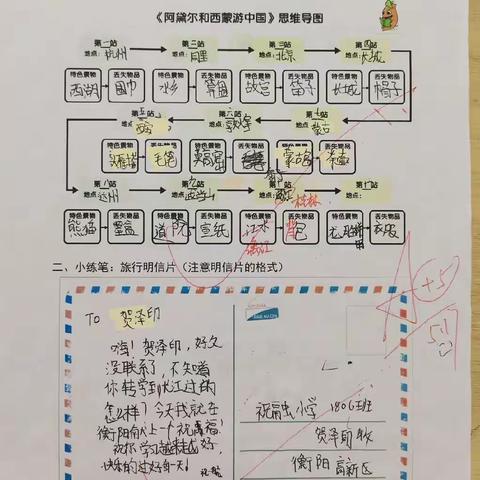 《阿黛尔和西蒙游中国》思维导图
第一站 第二站 第三站 第四站
地点:杭州 地点:同里 地点:北京 地点:长城
特色景物 丢失物品 特色景物 丢失物品 特色景物 丢失物品 特色景物 丢失物品
西湖 围巾 水乡 故宫 笛子 长城 帽子
第五站 第六站 第七站
地点:西安 地点:敦煌 地点:蒙古
特色景物 丢失物品 特色景物 丢失物品 特色景物 丢失物品
大雁塔 毛笔 莫高窟 蒙古包
第八站 第九站 第十站 第十一站
地点:达州 地点: 地点: 桂林 地点:
特色景物 丢失物品 特色景物 丢失物品 特色景物 丢失物品 特色景物 丢失物品
熊猫 道院 宣纸 江水 包 衣服
漓江
二、小练笔:旅行明信片(注意明信片的格式)
A +5
51
TO 贺泽印
嗨!贺泽印,好久
没联系了,不知道
你转学到长江过的
怎么样?今天我就在
衡阳献上一个祝福!
祝你学习越来越好,
快乐的过好每一天!
祝融小学 1806班
贺泽印收
衡阳高新区